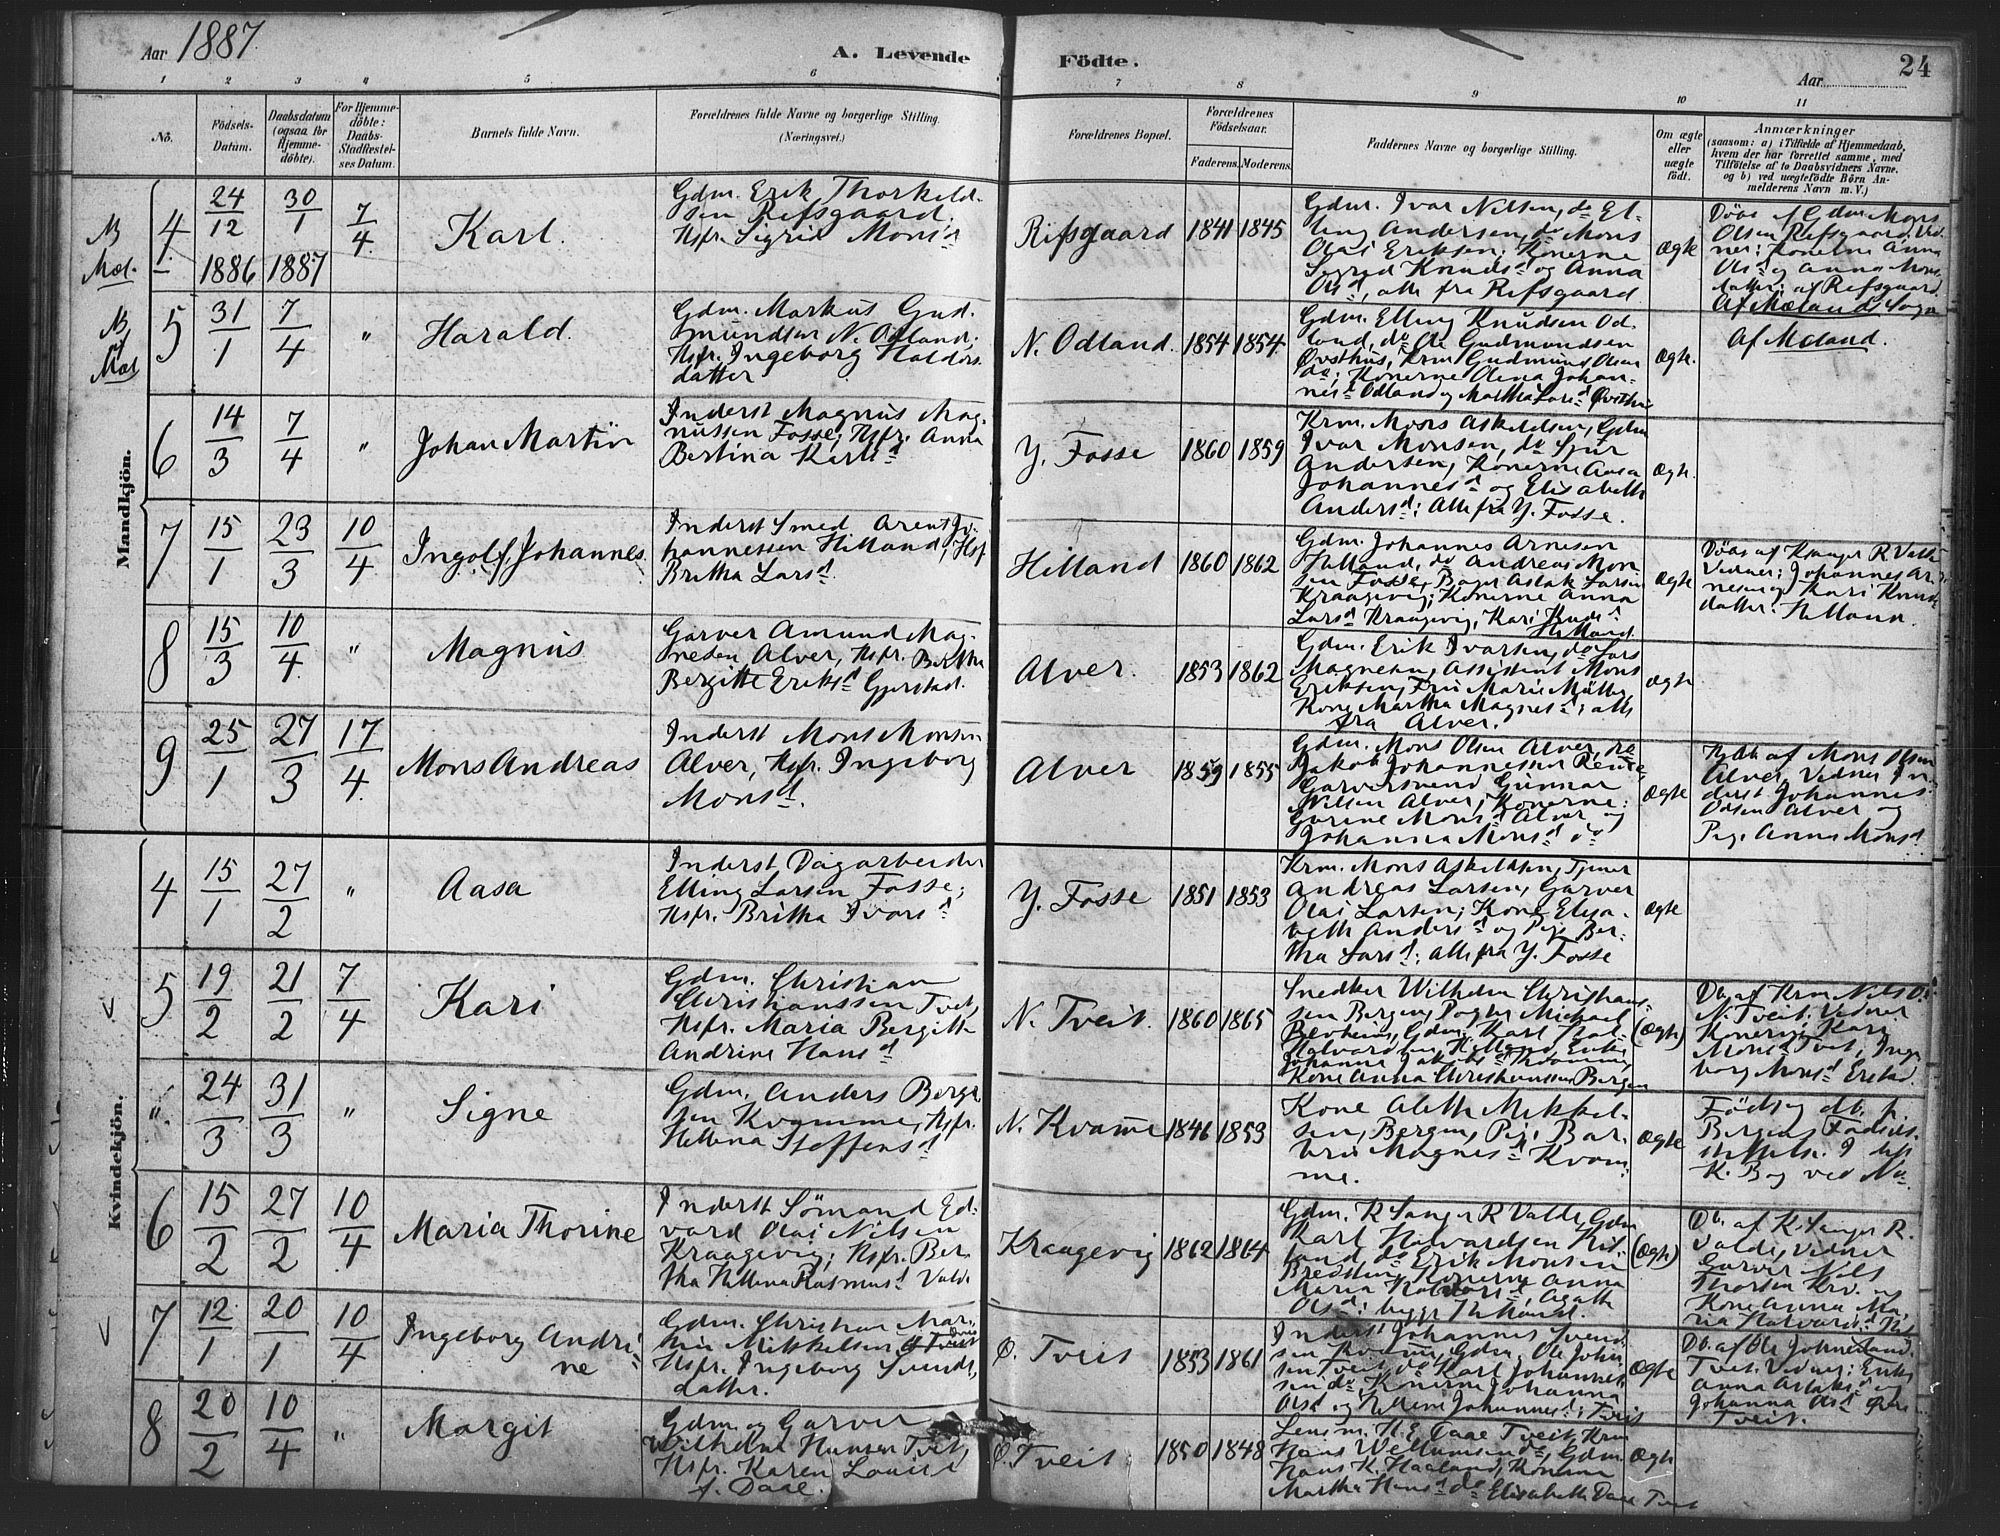 Aar 1887.
A. Levende Födte.
Aar
24
1 2 3 4 5 6 7 8 9 10 11
No.
Födsels-Datum.
Daabsdatum (ogsaa for Hjemme-döbte).
For Hjemme-döbte: Daabs-Stadfæstel-ses Datum.
Barnets fulde Navn.
Forældrenes fulde Navne og borgerlige Stilling.
(Næringsvei.)
Forældrenes Bopæl.
Forældrenes Födselsaar.
Faderens. Moderens.
Faddernes Navne og borgerlige Stilling.
Om ægte eller uægte födt.
Anmærkninger
(saasom: a) i Tilfælde af Hjemmedaab,
hvem der har forrettet samme, med
Tilföielse af to Daabsvidners Navne.
og b) ved uægtefödte Börn An-
melderens Navn m. V.)
Mandkjön.
4 24/12 1886 30/1 1887 7/4
Karl.
Gdm. Erik Thorkeld-
sen Refsgaard.
Hsfr. Sigrid Monsd
Rifsgaard 1841 1845
Gdm. Ivar Nilsen, do El-
ling Andersen, do Mons
Olai Eriksen; Konerne
Sigrid Knudsd og Anna
Olsd, alle fra Refsgaard
Ægte
Döbt af Gdm Mons
Olsen Refsgaard, Vid-
ner: Konerne Anna
Olsd og Anna Mons-
datter af Refsgaard.
Af Mælands Sogn
5 31/1 7/4 "
Harald.
Gdm. Markus Gud-
mundsen N. Odland.
Hsfr. Ingeborg Haldors-
datter
N. Odland. 1854 1854.
Gdm. Elling Knudsen Od-
land, do Ole Gudmundsen
Øvsthus, Krm Gudmund Olsen
do; Konerne Olina Johan-
nesd Odland og Martha Larsd Øvsthus
Ægte.
Af Mæland.
6 14/3 7/4 "
Johan Martin
Inderst Magnus Mag-
nussen Fosse, Hsfr. Anna
Bertina Karlsd
Y. Fosse 1860 1859
Krm. Mons Askeldsen, Gdm
Ivar Monsen, do Sjur
Andersen, Konerne Aasa
Johannesd og Elisabeth
Andersd: Alle fra Y. Fosse.
Ægte.
7 15/1 23/3 10/4
Ingolf Johannes.
Inderst Smed Arent Jo-
hannessen Hilland, Hsfr
Britha Larsd
Hilland 1860 1862
Gdm. Johannes Arnesen
Hilland, do Andreas Mon-
sen Fosse, Bager Aslak Larsen
Kraagevig; Konerne Anna
Larsd Kraagevig, Kari Knudsd
Hilland.
Ægte
Döbt af Kranger R Valde
Vidner: Johannes Ar-
nesen og Kari Knuds-
datter. Hilland.
8 15/3 10/4 "
Magnus
Garver Amund Mag-
nesen Alver, Hsfr. Bertha
Bergitte Eriksd Gjerstad.
Alver. 1853 1862
Gdm. Erik Ivarsen, do Lars
Magnesen, Assistent Mons
Eriksen, Fru Marie Müller,
Kone Martha Magnesd; alle
fra Alver.
Ægte
9 25/1 27/3 17/4
Mons Andreas
Inderst Mons Monsen
Alver, Hsfr. Ingeborg
Monsd.
Alver 1859 1855
Gdm. Mons Olsen Alver, do
Jakob Johannessen
Garversvend Gunnar
Nilsen Alver; Konerne:
Gurine Monsd Alver og
Johanna Monsd do
Ægte
Hjdbt af Mons Olsen
Alver, Vidner In-
derst Johannes
Olsen Alver og
Pige Anna Monsd
Kvindekjön.
4 15/1 27/2 "
Aasa
Inderst Dagarbeider
Elling Larsen Fosse;
Hsfr. Britha Ivarsd
Y. Fosse 1851 1853
Krm. Mons Askeldsen, Tjener
Andreas Larsen, Garver
Olai Larsen; Kone Elisa-
beth Andersd og Pige Ber-
tha Larsd: alle fra Y. Fosse
Ægte
5 19/2 21/2 7/4
Kari
Gdm. Christian
Christianssen Tveit,
Hsfr. Maria Bergitte
Andrine Hansd
N. Tveit. 1860 1865
Snedker Wilhelm Christians-
sen Bergen, Michael
Gdm. Karl
Halvardsen Hilland, Enke
Johanna Jakobsd Kvamme,
Kone Anna Christianssen Bergen
(Ægte)
Db. af Krm Nils
N. Tveit. Vidner
Konerne Kari
Monsd Tveit, Inge-
borg Monsd Erstad.
" 24/3 31/3 "
Signe
Gdm. Anders Berge-
sen Kvamme, Hsfr.
Hellena Steffensd
N. Kvamme 1846 1853
Kone Aleth Mikkel-
sen, Bergen, Pige Bar-
bra Magnesd Kvam-
me.
Ægte
Födt og db. p.
Bergens Födsels-
stiftelse.
6 15/2 27/2 10/4
Maria Thorine
Inderst Sömand Ed-
vard Olai Nilsen
Kraagevig; Hsfr. Ber-
tha Hellena Rasmusd Valde
Kraagevig 1862 1864
Gdm. K Sanger R Valde, Gdm
Karl Halvardsen Hil-
land, do Erik Monsen
Konerne Anna
Maria Agathe
Olsd;
(Ægte)
Db. af K. Sanger R.
Valde, Vidner
Garver Nils
Thorsen og
Kone Anna Ma-
ria Halvardsd
7 12/1 20/1 10/4
Ingeborg Andri-
ne
Gdm. Christian Mar-
tin Mikkelsen Tveit
Hsfr. Ingeborg Svends-
datter.
Ø. Tveit 1853 1861
Inderst Johannes Svend-
sen Kvamme, Gdm. Ole Johns-
sen Tveit, do Karl Johannes-
sen do Konerne Johanna
Olsd og Johannesd; Tveit
Ægte
Db. af Ole
Tveit. Vidner: Enke
Anna Aslaksd og
Johanna Olsd
Tveit.
8 20/2 10/4 "
Margit
Gdm og Garver
Wilhelm Hansen Tveit,
Hsfr. Karen Louise
f. Daae.
Ø. Tveit 1850 1848
Lensm. H. E Daae Tveit, Krm
Hans do, Gdm
Hans K. Haaland, Konerne
Martha Hansd do, Elisabeth Daae Tveit
Ægte